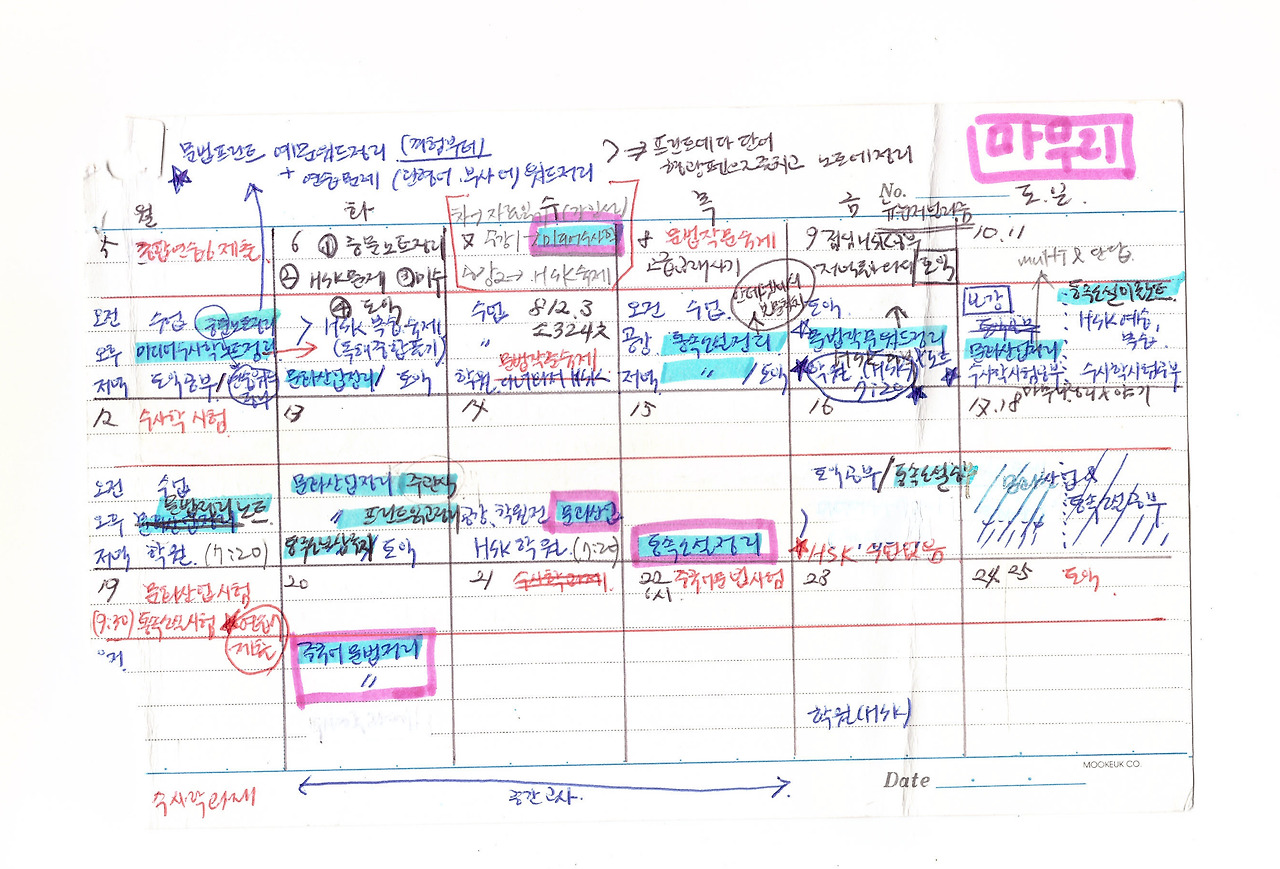 문법프린트 예문워드정리 (께험부터)
+ 연습문제 (단형어.부사어) 워드정리
⇒ 프린트에다 단어
형광펜으로 줄치고 노트에 정리
마무리
No.
월 화 수 목 금 토.일.
5 종합연습6 제출.
6 ① 중문노트정리
② HSK문제 ③미수
④ 토익
수강1→ 미디어수사학
수강2→ HSK숙제
8 문법작문숙제
고급공래사기
9 점심HSK공부
토익
10.11
multi & 단답.
오전 수업 중문노트정리
오후 미디어수사학노트정리
저녁 토익공부/
> HSK 복습.숙제
(독해종합풀기)
문화산업정리/ 토익
수업 812.3
소324호
〃
문법작문숙제
학원.
오전 수업.
공강 통속소설정리
저녁 〃 /토익
토익
문법작문워드정리
학원 (HSK)
7:20
보강
문화산업정리
수사학시험공부
통속소설이론노트
HSK예습,
복습.
수사학시험공부
12 수사학 시험
13
14
15
16
17.18
오전 수업
오후 문법정리노트
저녁 학원 (7:20)
문화산업정리 주관식
〃
토익
공강, 학원전 문화산업
HSK 학원.(7:20)
통속소설정리
토익공부/통속소설
HSK
문화산업 &
통속소설공부
19 문화산업시험
(9:30) 통속소설시험
제출
20
21 수사학과제.
22 중국어문법시험
6시
23
24 25 토익
중국어 문법정리
〃
학원(HSK)
MOOKEUK CO.
Date
수사학과제
중간고사.